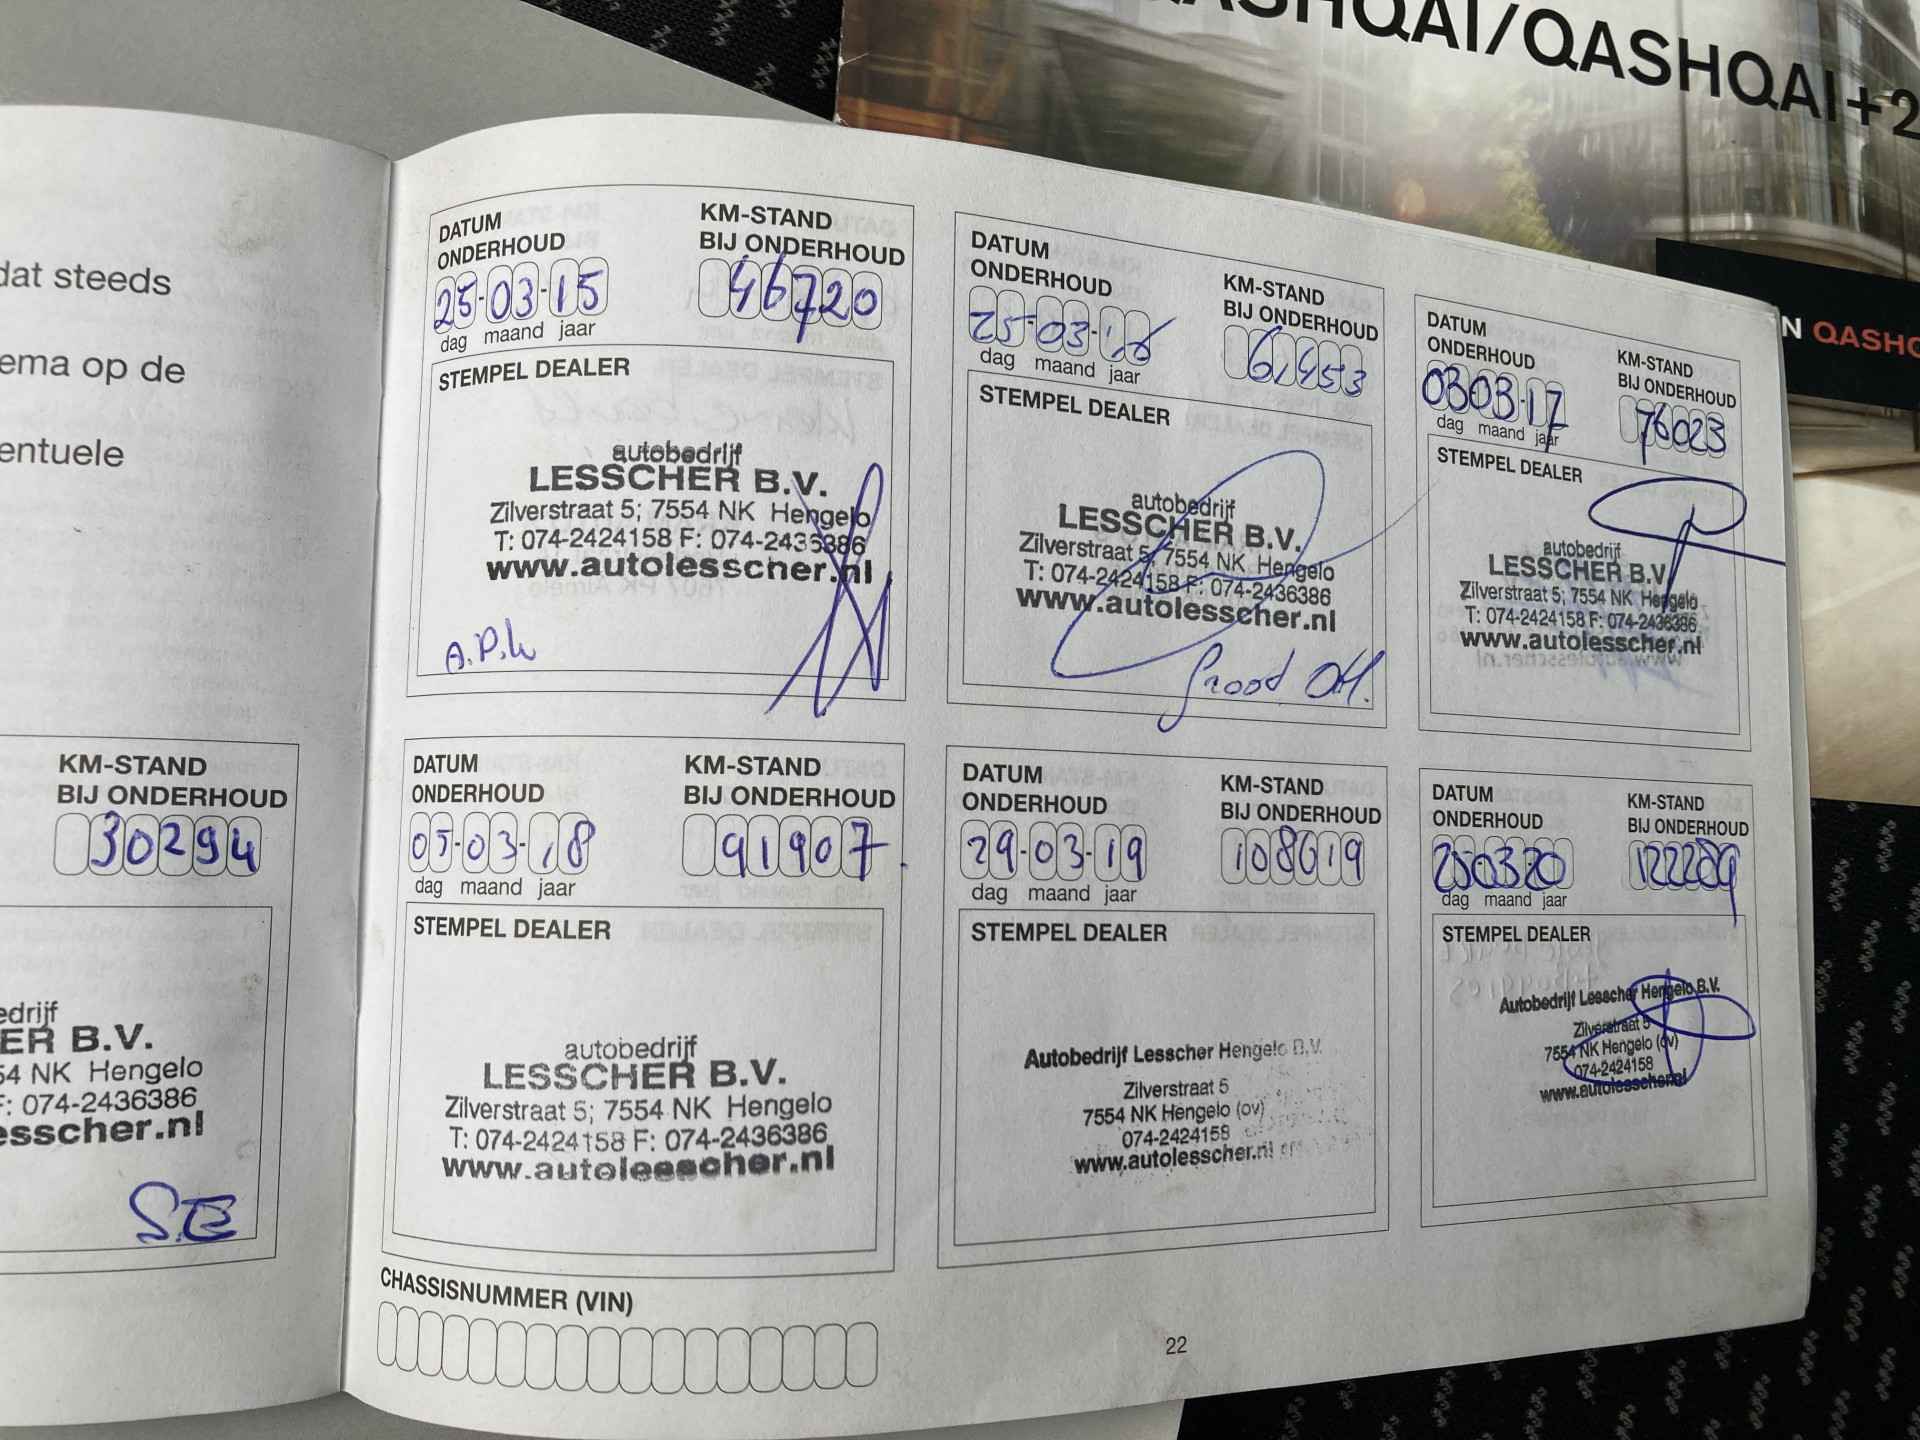 QASHQAI/QASHQAI+2
N QASHQ
dat steeds
ema op de
entuele
KM-STAND
BIJ ONDERHOUD
30294
edrijf
ER B.V.
54 NK Hengelo
F: 074-2436386
esscher.nl
S.E
DATUM
ONDERHOUD
25-03-15
dag maand jaar
KM-STAND
BIJ ONDERHOUD
46720
STEMPEL DEALER
autobedrijf
LESSCHER B.V.
Zilverstraat 5; 7554 NK Hengelo
T: 074-2424158 F: 074-2436386
www.autolesscher.nl
DATUM
ONDERHOUD
25-03-16
dag maand jaar
KM-STAND
BIJ ONDERHOUD
61453
STEMPEL DEALER
autobedrijf
LESSCHER B.V.
Zilverstraat 5; 7554 NK Hengelo
T: 074-2424158 F: 074-2436386
www.autolesscher.nl
Groot OH.
DATUM
ONDERHOUD
03-03-17
dag maand jaar
KM-STAND
BIJ ONDERHOUD
76023
STEMPEL DEALER
autobedrijf
LESSCHER B.V.
Zilverstraat 5; 7554 NK Hengelo
T: 074-2424158 F: 074-2436386
www.autolesscher.nl
DATUM
ONDERHOUD
05-03-18
dag maand jaar
KM-STAND
BIJ ONDERHOUD
91907
STEMPEL DEALER
autobedrijf
LESSCHER B.V.
Zilverstraat 5; 7554 NK Hengelo
T: 074-2424158 F: 074-2436386
www.autolesscher.nl
DATUM
ONDERHOUD
29-03-19
dag maand jaar
KM-STAND
BIJ ONDERHOUD
108619
STEMPEL DEALER
Autobedrijf Lesscher Hengelo B.V.
Zilverstraat 5
7554 NK Hengelo (ov)
074-2424158
www.autolesscher.nl
DATUM
ONDERHOUD
25-03-20
dag maand jaar
KM-STAND
BIJ ONDERHOUD
122289
STEMPEL DEALER
Autobedrijf Lesscher Hengelo B.V.
Zilverstraat 5
7554 NK Hengelo (ov)
074-2424158
www.autolesscher.nl
CHASSISNUMMER (VIN)
22